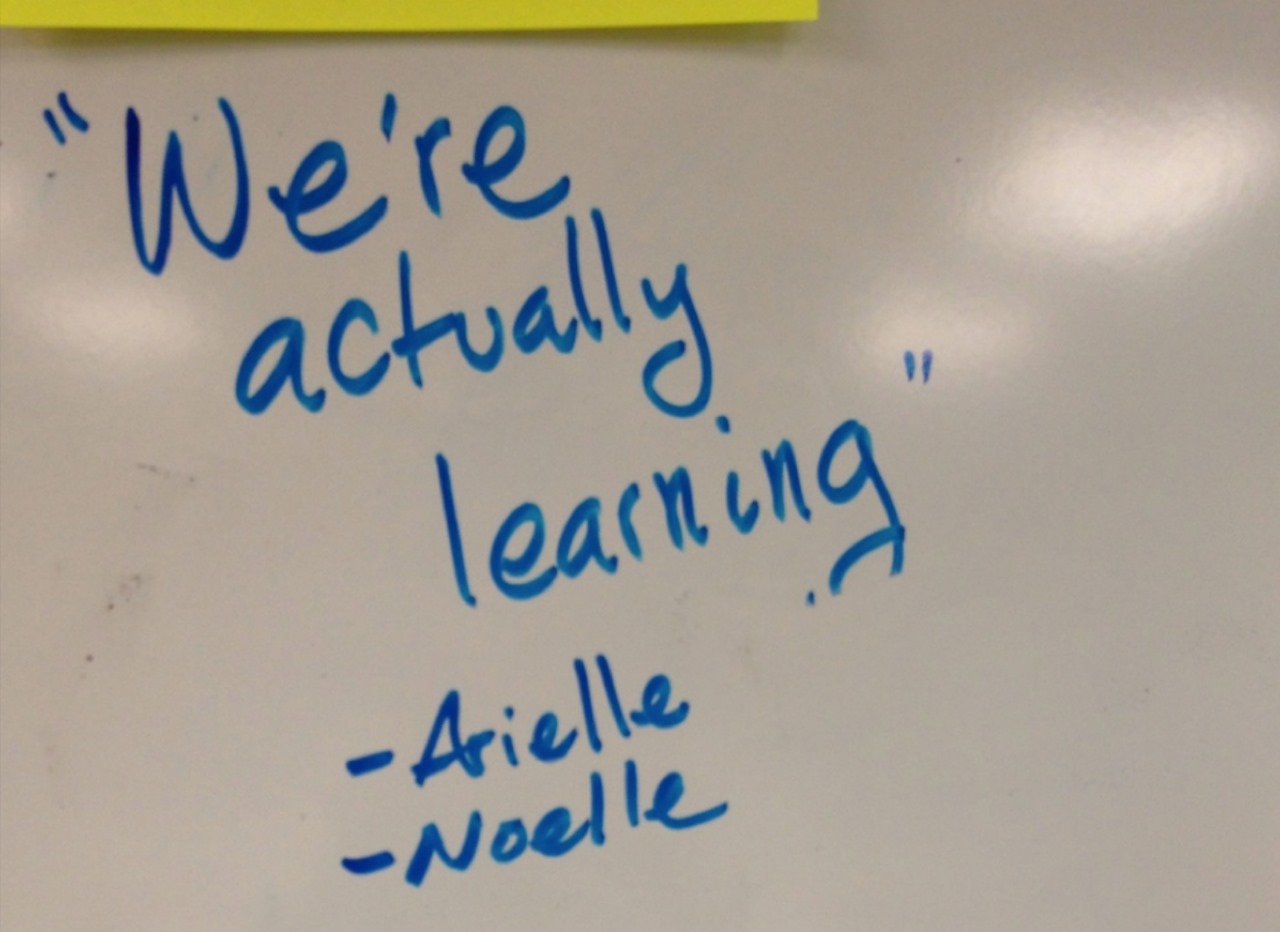 "We're
actually
learning"
-Arielle
-Noelle